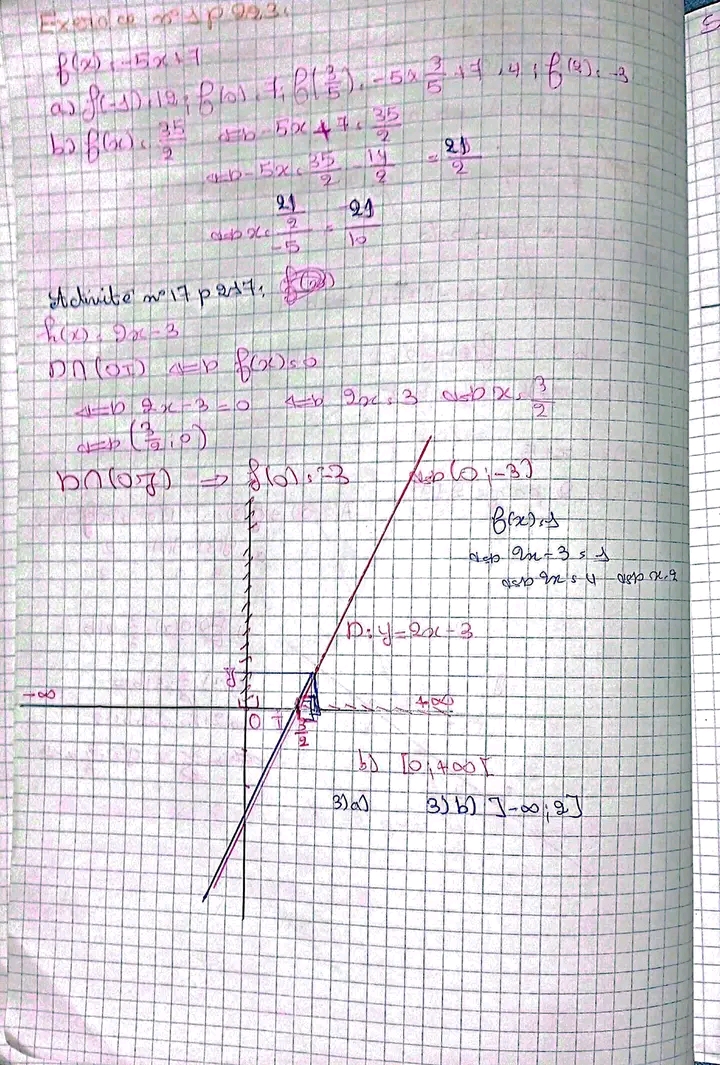 Exercice n°1 p 223:
f(x) = -5x+7
a) f(-1) = 12 ; f(0) = 7 ; f(3/5) = -5x 3/5 +7 = 4 ; f(2) = -3
b) f(x) = 35/2 <=> -5x + 7 = 35/2
<=> -5x = 35/2 - 14/2 = 21/2
<=> x = 21/2 / -5 = -21/10
Activité n°17 p 217:
h(x) = 2x-3
D∩(OI) <=> f(x) = 0
<=> 2x-3 = 0 <=> 2x = 3 <=> x = 3/2
<=> (3/2 ; 0)
D∩(OJ) => f(0) = -3 <=> (0 ; -3)
f(x) = 1
<=> 2x-3 = 1
<=> 2x = 4 <=> x = 2
D: y = 2x-3
J
-∞ +∞
O I 3/2
b) [0 ; +∞[
3) a) 3) b) ]-∞ ; 2]